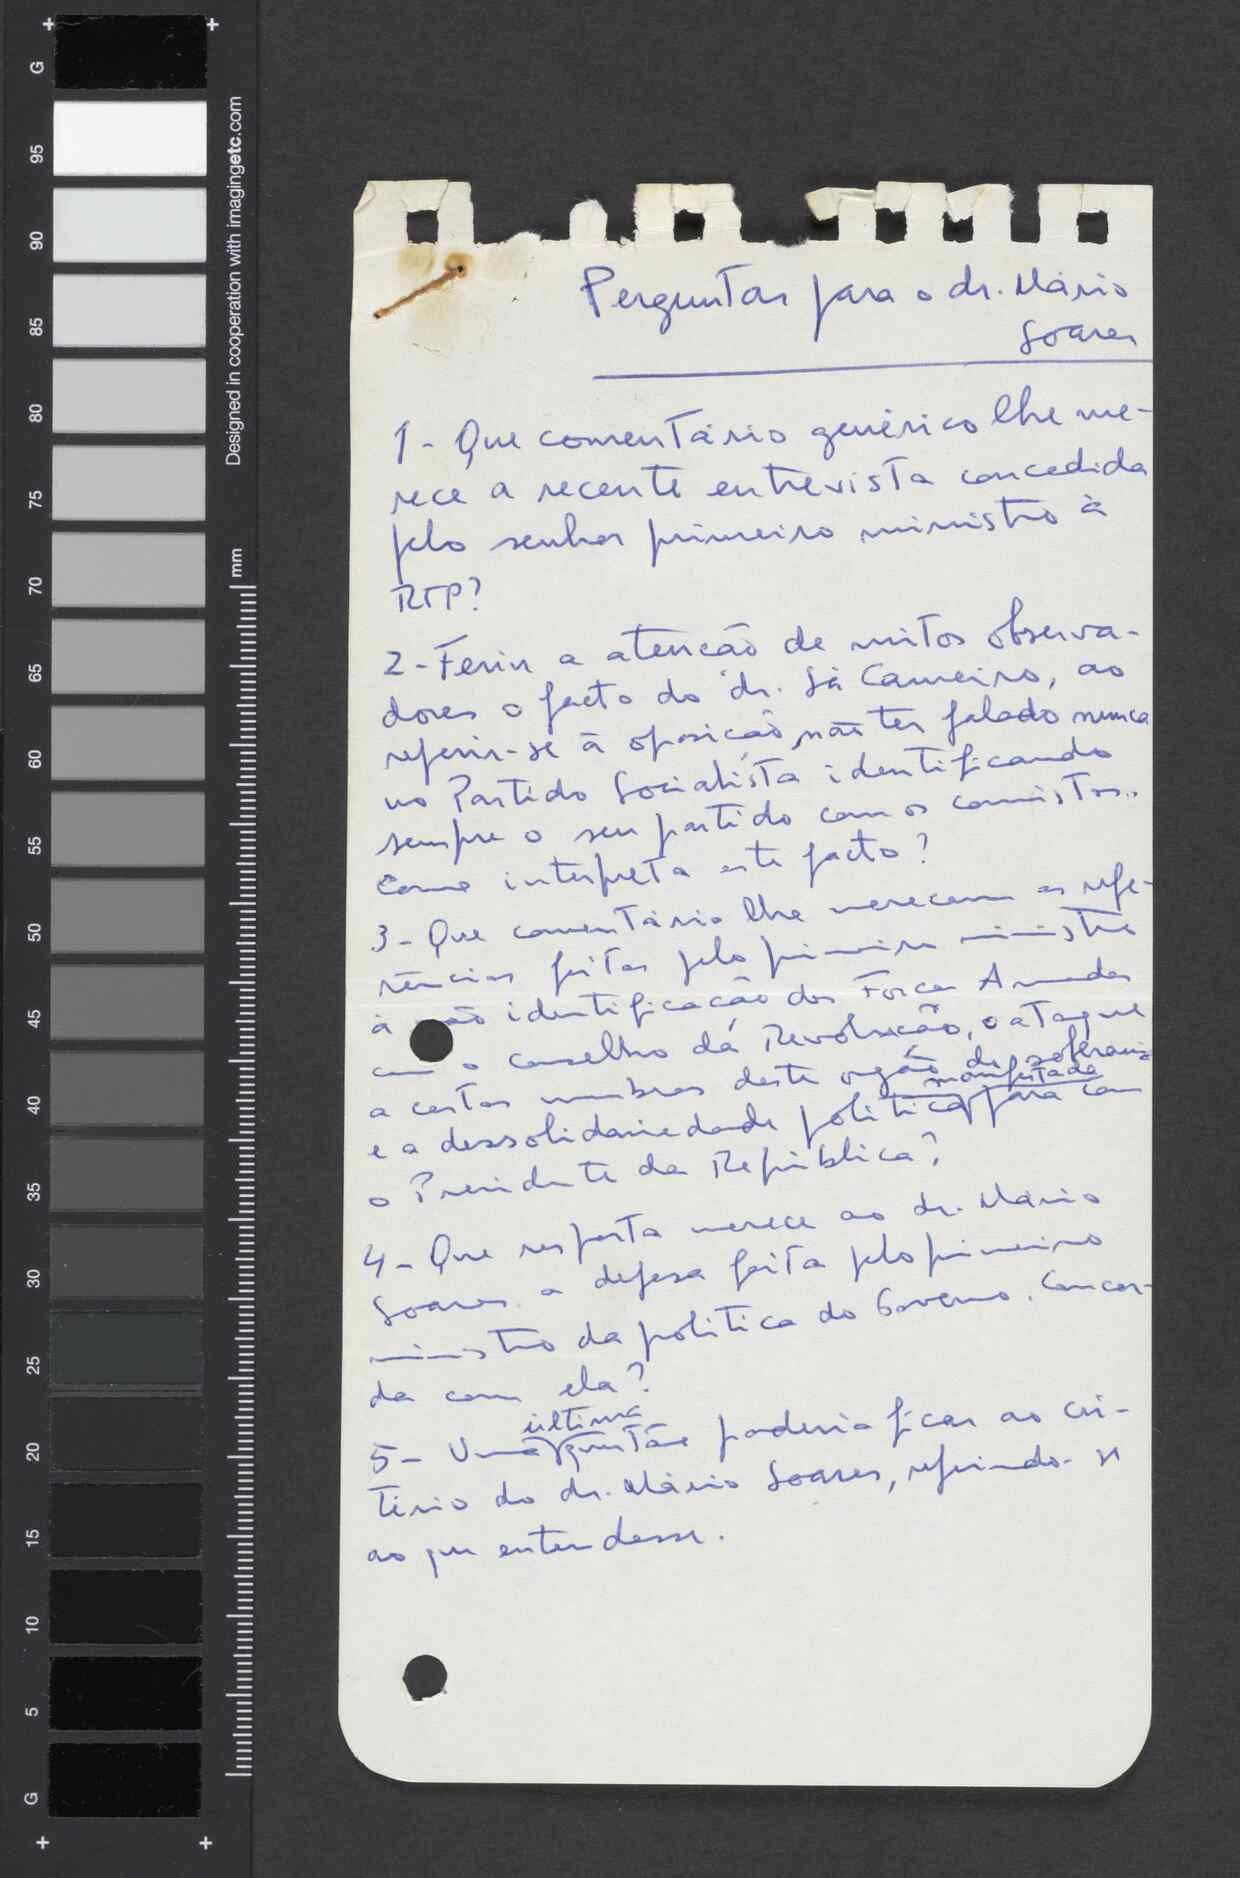 Perguntas para o dr. Mário
Soares
1- Que comentário genérico lhe me-
rece a recente entrevista concedida
pelo senhor primeiro ministro à
RTP?
2- Feriu a atenção de muitos observa-
dores o facto do dr. Sá Carneiro, ao
referir-se à oposição, não ter falado nunca
no Partido Socialista identificando
sempre o seu partido com os comunistas.
Como interpreta este facto?
3- Que comentário lhe merecem as refe-
rências feitas pelo primeiro ministro
à não identificação das Forças Armadas
com o conselho da Revolução, o ataque
a certos membros deste orgão de soberania
manifestada
e a dessolidariedade política para com
o Presidente da República?
4- Que resposta merece ao dr. Mário
Soares a defesa feita pelo primeiro
ministro da política do Governo. Concor-
da com ela?
última
5- Uma questão poderia ficar ao cri-
tério do dr. Mário Soares, referindo-se
ao que entendesse.
Designed in cooperation with imagingetc.com
mm
G
95
90
85
80
75
70
65
60
55
50
45
40
35
30
25
20
15
10
5
G